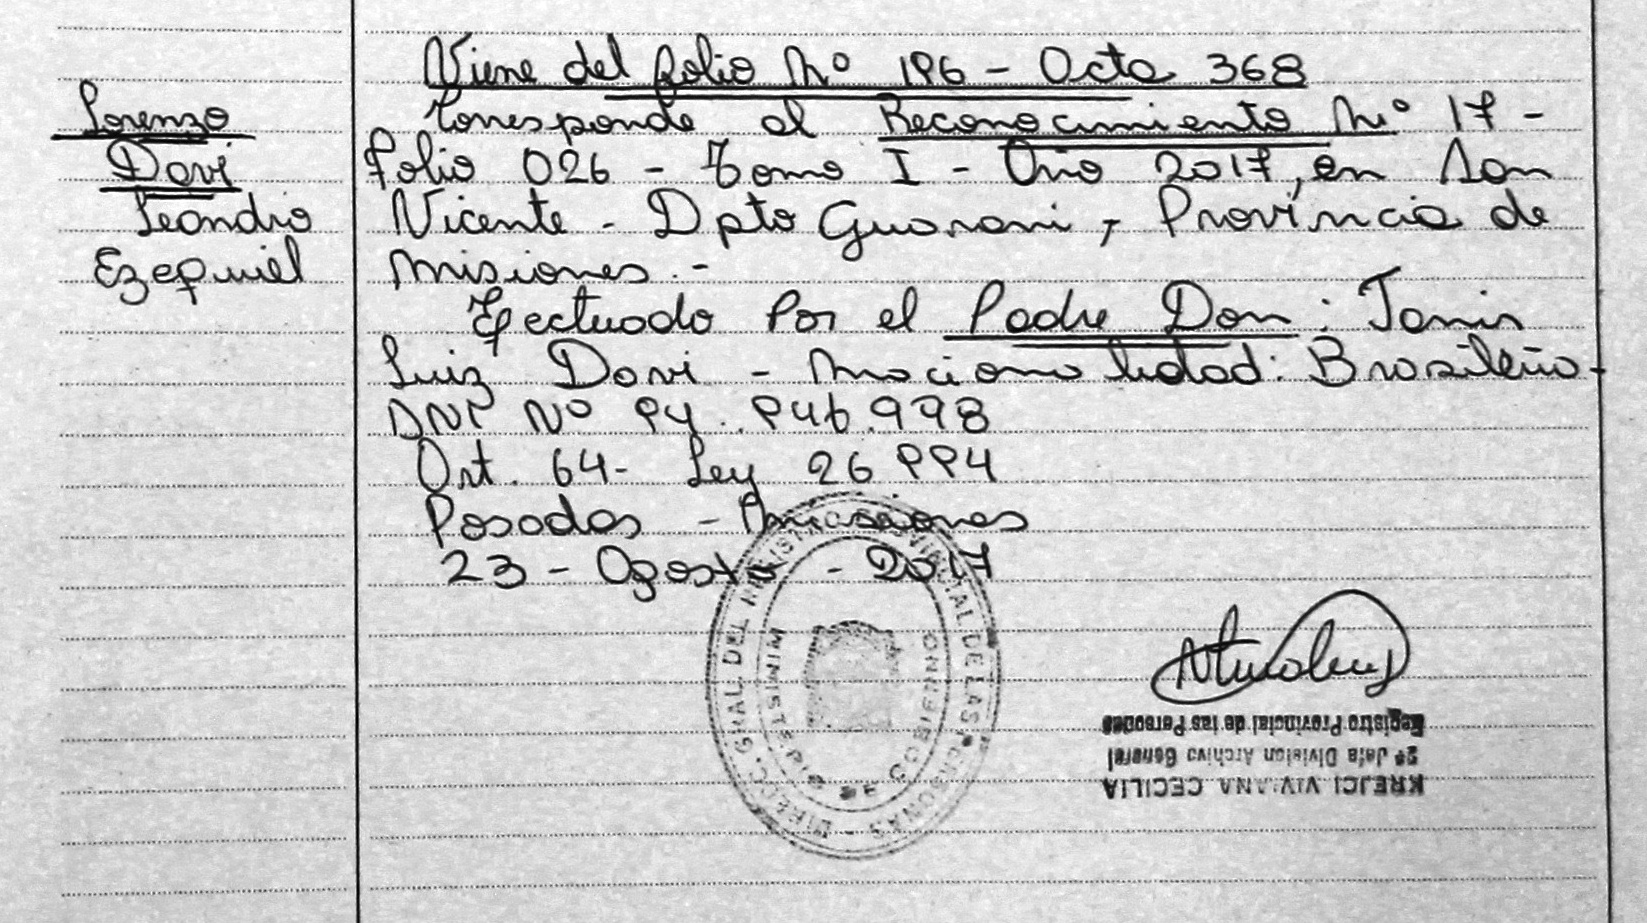 Viene del folio Nº 196 - Acta 368
Lorenzo
Dovi
Leandro
Ezequiel
Corresponde al Reconocimiento Nº 17 -
folio 026 - Tomo I - Año 2017, en San
Vicente - Dpto Guarani, Provincia de
Misiones.-
Efectuado Por el Padre Don: Janir
Luiz Dovi - Nacionalidad: Brasileño-
DNI Nº 94.946.998
Art. 64- Ley 26994
Posadas - Misiones
23 - Agosto - 2017
DIRECC. GRAL. DEL REGISTRO PROVINCIAL DE LAS PERSONAS
MINISTERIO DE GOBIERNO
KREJCI VIVIANA CECILIA
2º Jefa Division Archivo General
Registro Provincial de las Personas